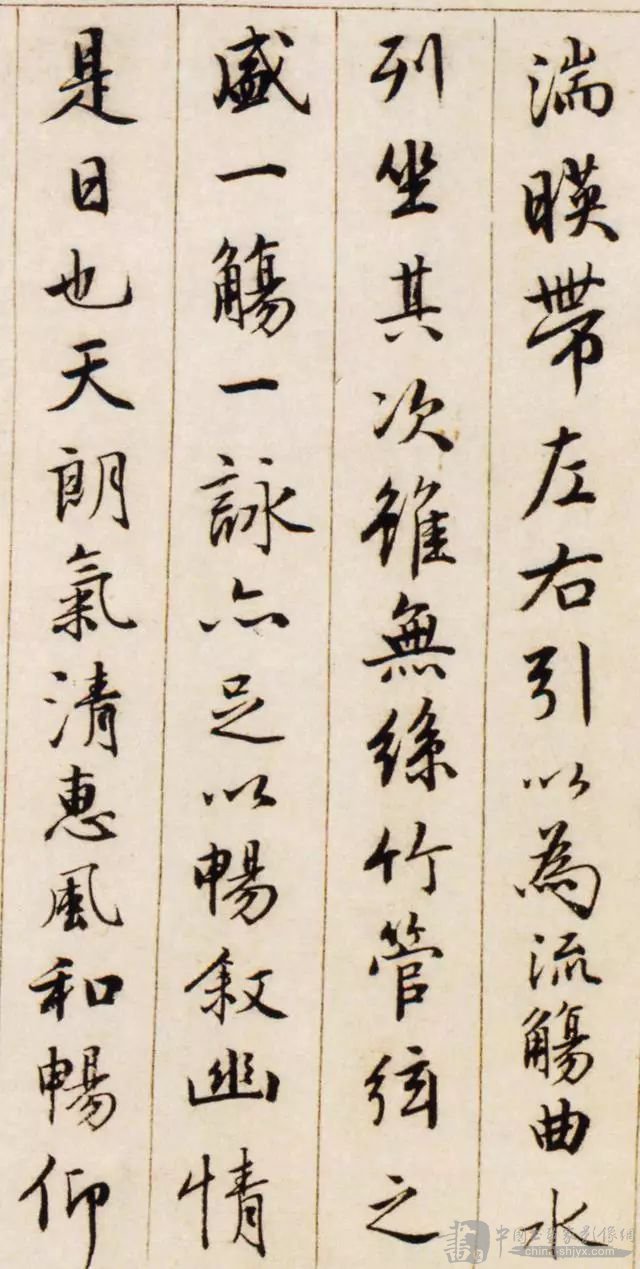 湍暎帶左右引以為流觴曲水
列坐其次雖無絲竹管絃之
盛一觴一詠亦足以暢敘幽情
是日也天朗氣清惠風和暢仰
書 中国书画家影像網
china-shjyx.com